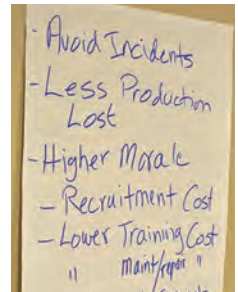 - Avoid Incidents
- Less Production
Lost
- Higher Morale
- Recruitment Cost
- Lower Training Cost
" Maint/repair "